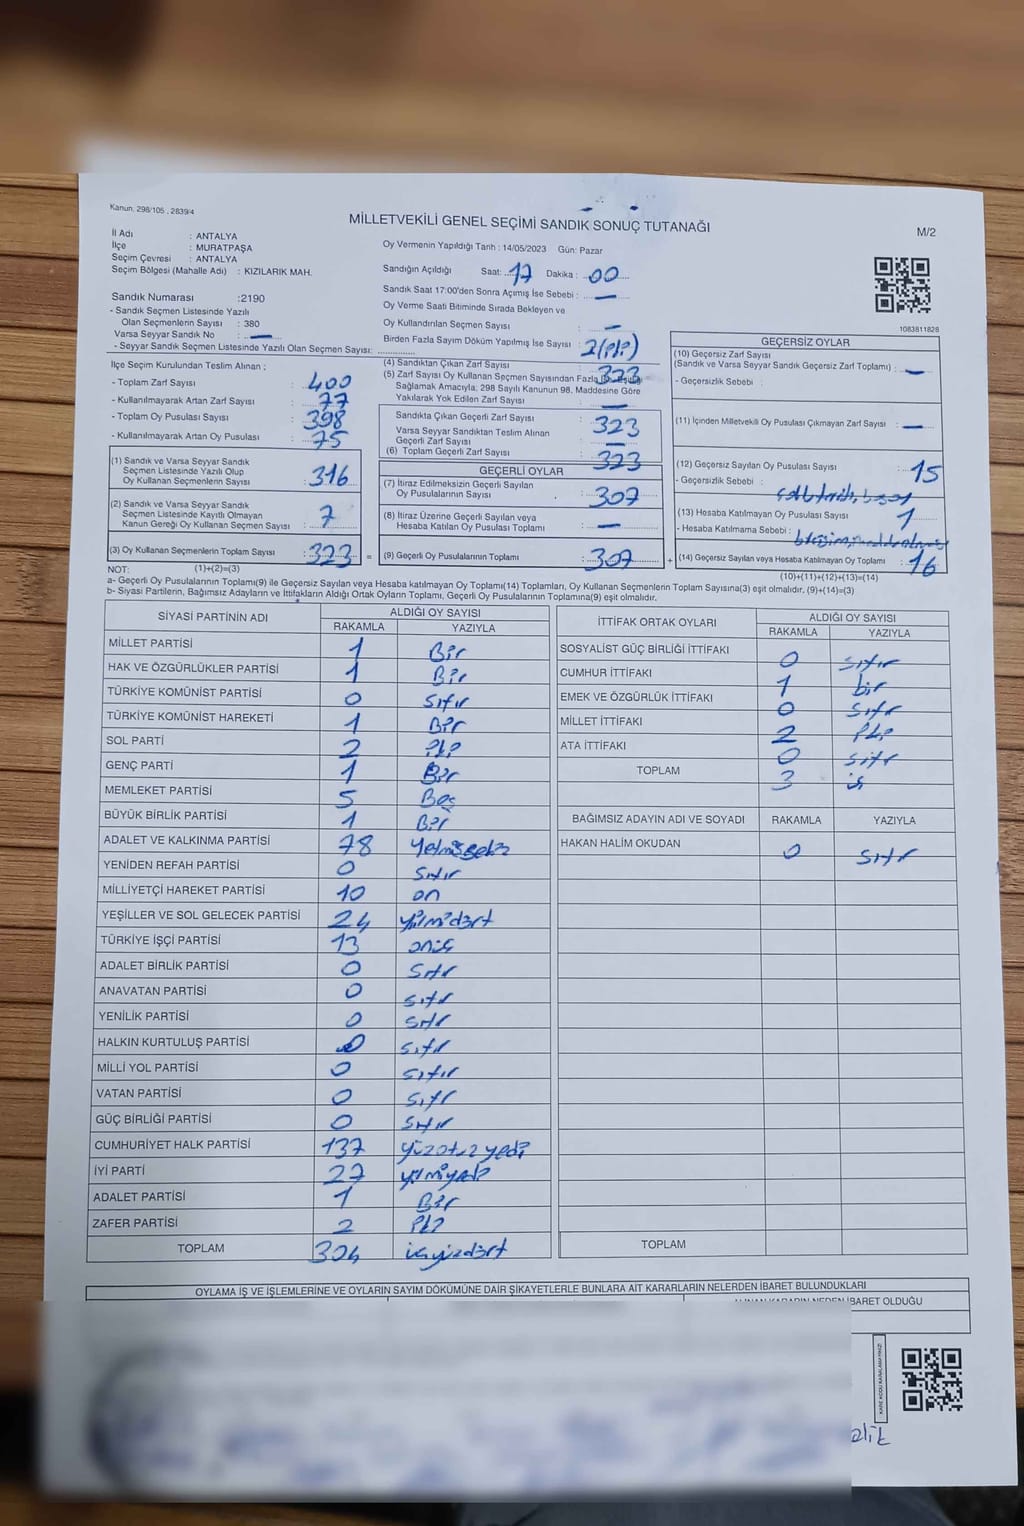 Kanun, 298/105 , 2839/4
MİLLETVEKİLİ GENEL SEÇİMİ SANDIK SONUÇ TUTANAĞI
M/2
İl Adı : ANTALYA
İlçe : MURATPAŞA
Seçim Çevresi : ANTALYA
Seçim Bölgesi (Mahalle Adı) : KIZILARIK MAH.
Sandık Numarası :2190
- Sandık Seçmen Listesinde Yazılı
Olan Seçmenlerin Sayısı : 380
Varsa Seyyar Sandık No : —
- Seyyar Sandık Seçmen Listesinde Yazılı Olan Seçmen Sayısı: ............
Oy Vermenin Yapıldığı Tarih : 14/05/2023 Gün: Pazar
Sandığın Açıldığı Saat: 17 Dakika : 00
Sandık Saat 17:00'den Sonra Açımış İse Sebebi : —
Oy Verme Saati Bitiminde Sırada Bekleyen ve
Oy Kullandırılan Seçmen Sayısı : —
Birden Fazla Sayım Döküm Yapılmış İse Sayısı : 2(iki)
1083811828
İlçe Seçim Kurulundan Teslim Alınan ;
- Toplam Zarf Sayısı : 400
- Kullanılmayarak Artan Zarf Sayısı : 77
- Toplam Oy Pusulası Sayısı : 398
- Kullanılmayarak Artan Oy Pusulası : 75
(1) Sandık ve Varsa Seyyar Sandık
Seçmen Listesinde Yazılı Olup
Oy Kullanan Seçmenlerin Sayısı : 316
(2) Sandık ve Varsa Seyyar Sandık
Seçmen Listesinde Kayıtlı Olmayan
Kanun Gereği Oy Kullanan Seçmen Sayısı : 7
(3) Oy Kullanan Seçmenlerin Toplam Sayısı : 323 =
(1)+(2)=(3)
(4) Sandıktan Çıkan Zarf Sayısı : 323
(5) Zarf Sayısı Oy Kullanan Seçmen Sayısından Fazla
Sağlamak Amacıyla, 298 Sayılı Kanunun 98. Maddesine Göre
Yakılarak Yok Edilen Zarf Sayısı : —
Sandıkta Çıkan Geçerli Zarf Sayısı : 323
Varsa Seyyar Sandıktan Teslim Alınan
Geçerli Zarf Sayısı : —
(6) Toplam Geçerli Zarf Sayısı : 323
GEÇERLİ OYLAR
(7) İtiraz Edilmeksizin Geçerli Sayılan
Oy Pusulalarının Sayısı : 307
(8) İtiraz Üzerine Geçerli Sayılan veya
Hesaba Katılan Oy Pusulası Toplamı : —
(9) Geçerli Oy Pusulalarının Toplamı : 307 +
GEÇERSİZ OYLAR
(10) Geçersiz Zarf Sayısı
(Sandık ve Varsa Seyyar Sandık Geçersiz Zarf Toplamı) : —
- Geçersizlik Sebebi :
(11) İçinden Milletvekili Oy Pusulası Çıkmayan Zarf Sayısı : —
(12) Geçersiz Sayılan Oy Pusulası Sayısı : 15
- Geçersizlik Sebebi :
(13) Hesaba Katılmayan Oy Pusulası Sayısı : 1
- Hesaba Katılmama Sebebi :
(14) Geçersiz Sayılan veya Hesaba Katılmayan Oy Toplamı : 16
(10)+(11)+(12)+(13)=(14)
NOT:
a- Geçerli Oy Pusulalarının Toplamı(9) ile Geçersiz Sayılan veya Hesaba katılmayan Oy Toplamı(14) Toplamları, Oy Kullanan Seçmenlerin Toplam Sayısına(3) eşit olmalıdır. (9)+(14)=(3)
b- Siyasi Partilerin, Bağımsız Adayların ve İttifakların Aldığı Ortak Oyların Toplamı, Geçerli Oy Pusulalarının Toplamına(9) eşit olmalıdır.
SİYASİ PARTİNİN ADI ALDIĞI OY SAYISI
RAKAMLA YAZIYLA
MİLLET PARTİSİ 1 Bir
HAK VE ÖZGÜRLÜKLER PARTİSİ 1 Bir
TÜRKİYE KOMÜNİST PARTİSİ 0 Sıfır
TÜRKİYE KOMÜNİST HAREKETİ 1 Bir
SOL PARTİ 2 iki
GENÇ PARTİ 1 Bir
MEMLEKET PARTİSİ 5 Beş
BÜYÜK BİRLİK PARTİSİ 1 Bir
ADALET VE KALKINMA PARTİSİ 78 Yetmişsekiz
YENİDEN REFAH PARTİSİ 0 Sıfır
MİLLİYETÇİ HAREKET PARTİSİ 10 on
YEŞİLLER VE SOL GELECEK PARTİSİ 24 yirmidört
TÜRKİYE İŞÇİ PARTİSİ 13 onüç
ADALET BİRLİK PARTİSİ 0 Sıfır
ANAVATAN PARTİSİ 0 Sıfır
YENİLİK PARTİSİ 0 Sıfır
HALKIN KURTULUŞ PARTİSİ 0 Sıfır
MİLLİ YOL PARTİSİ 0 Sıfır
VATAN PARTİSİ 0 Sıfır
GÜÇ BİRLİĞİ PARTİSİ 0 Sıfır
CUMHURİYET HALK PARTİSİ 137 yüzotuzyedi
İYİ PARTİ 27 yirmiyedi
ADALET PARTİSİ 1 Bir
ZAFER PARTİSİ 2 iki
TOPLAM 304 üçyüzdört
İTTİFAK ORTAK OYLARI ALDIĞI OY SAYISI
RAKAMLA YAZIYLA
SOSYALİST GÜÇ BİRLİĞİ İTTİFAKI 0 Sıfır
CUMHUR İTTİFAKI 1 bir
EMEK VE ÖZGÜRLÜK İTTİFAKI 0 Sıfır
MİLLET İTTİFAKI 2 iki
ATA İTTİFAKI 0 Sıfır
TOPLAM 3 üç
BAĞIMSIZ ADAYIN ADI VE SOYADI RAKAMLA YAZIYLA
HAKAN HALİM OKUDAN 0 Sıfır
TOPLAM
OYLAMA İŞ VE İŞLEMLERİNE VE OYLARIN SAYIM DÖKÜMÜNE DAİR ŞİKAYETLERLE BUNLARA AİT KARARLARIN NELERDEN İBARET BULUNDUKLARI
İBARET OLDUĞU